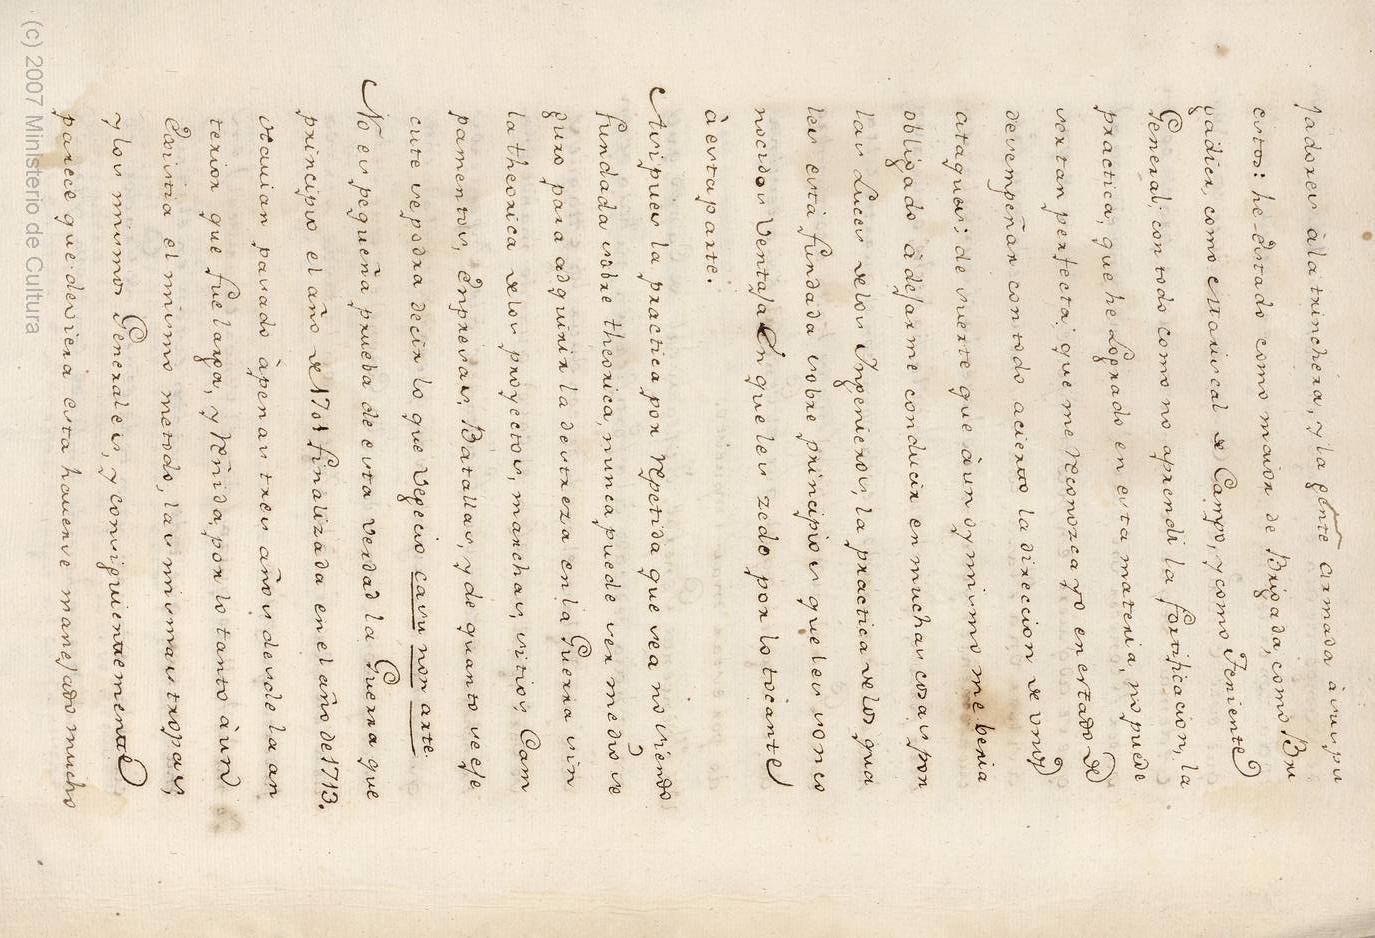 jadores à la trinchera, y la gente armada à su pu
estos: he estado como maior de Brigada, como Bri
gadier, como Mariscal de Campo, y como Teniente
General; con todo como no aprendi la fortificacion, la
practica, que he Logrado en esta materia, no puede
ser tan perfecta: que me reconozca yo en estado de
desempeñar con todo acierto la direccion de unos
ataques; de suerte que àun oy mismo me beria
obligado à dejarme conducir en muchas cosas por
las Luces de los Ingenieros, la practica de los qua
les està fundada sobre principios que les son co
nocidos Ventaja en que les zedo por lo tocante
à esta parte.
Asi pues la practica por repetida que sea no siendo
fundada sobre theorica, nunca puede ser medio se
guro para adquirir la destreza en la Guerra sin
la theorica de los proyectos, marchas, sitios, Cam
pamentos, Empresas, Batallas, y de quanto se eje
cute se podra decir lo que Vegecio casu non arte
No es pequeña prueba de esta verdad la Guerra que
principio el año de 1701 finalizada en el año de 1713.
Havian pasado àpenas tres años desde la an
terior que fue larga, y reñida, por lo tanto àun
Existia el mismo metodo, las mismas tropas,
y los mismos Generales, y consiguientemente
parece que deviera esta haverse manejado mucho
(c) 2007 Ministerio de Cultura